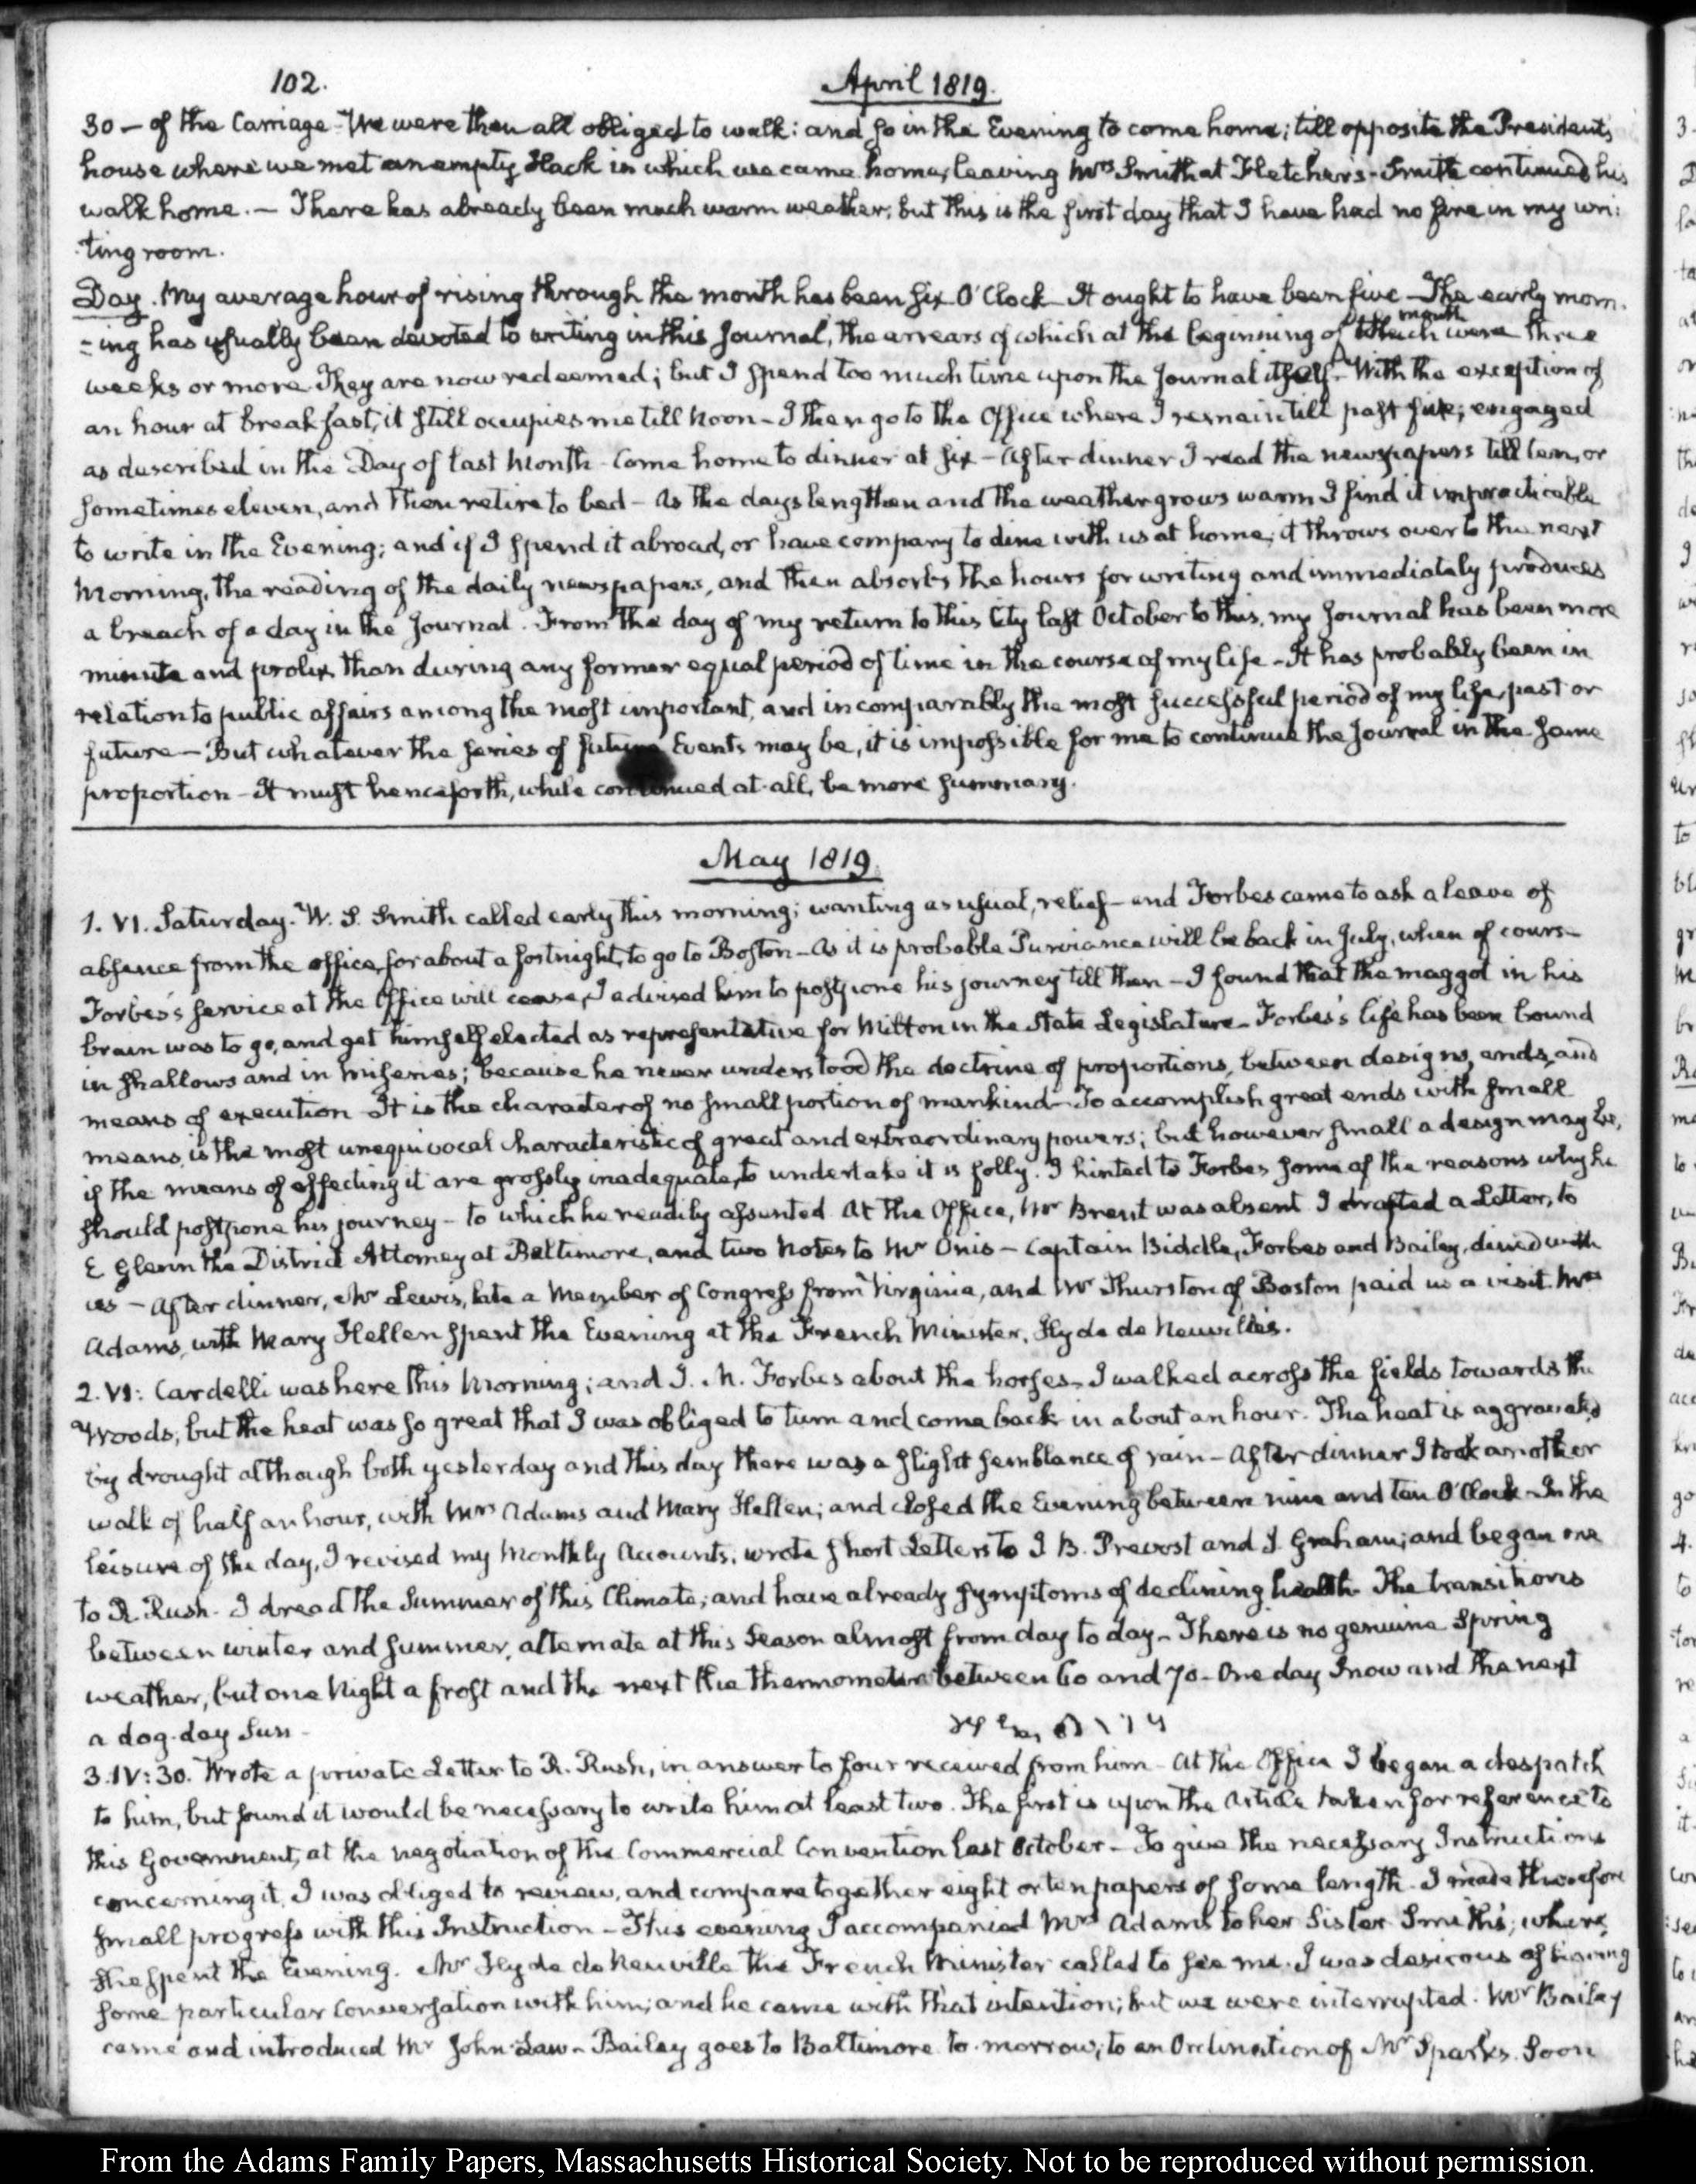 102.
April 1819.
30 — of the Carriage - We were then all obliged to walk: and so in the Evening to come home; till opposite the President's
house where we met an empty Hack in which we came home, leaving Mrs Smith at Fletcher's - Smith continued his
walk home. — There has already been much warm weather, but this is the first day that I have had no fire in my wri:
:ting room.
Day. My average hour of rising through the month has been six O'Clock - It ought to have been five - The early morn.
=ing has usually been devoted to writing in this Journal, the arrears of which at the beginning of the month were three
weeks or more. They are now redeemed; but I spend too much time upon the Journal itself - With the exception of
an hour at breakfast, it still occupies me till Noon - I then go to the Office where I remain till past five; engaged
as described in the Day of last Month - Come home to dinner at six - After dinner I read the newspapers till ten, or
sometimes eleven, and then retire to bed - As the days lengthen and the weather grows warm I find it impracticable
to write in the Evening; and if I spend it abroad, or have company to dine with us at home, it throws over to the next
Morning, the reading of the daily newspapers, and then absorbs the hours for writing and immediately produces
a breach of a day in the Journal. From the day of my return to this City last October to this, my Journal has been more
minute and prolix than during any former equal period of time in the course of my life - It has probably been in
relation to public affairs among the most important, and incomparably the most successful period of my life, past or
future — But whatever the series of future Events may be, it is impossible for me to continue the Journal in the same
proportion - It must henceforth, while continued at all, be more summary.
May 1819.
1. VI. Saturday. W. S. Smith called early this morning; wanting as usual, relief - and Forbes came to ask a leave of
absence from the office, for about a fortnight, to go to Boston - As it is probable Purviance will be back in July, when of course
Forbes's service at the Office will cease, I advised him to postpone his journey till then - I found that the maggot in his
brain was to go, and get himself elected as representative for Milton in the State Legislature - Forbes's life has been bound
in shallows and in miseries; because he never understood the doctrine of proportions, between designs, ends, and
means of execution - It is the character of no small portion of mankind - To accomplish great ends with small
means, is the most unequivocal characteristic of great and extraordinary powers; but however small a design may be,
if the means of effecting it are grossly inadequate, to undertake it is folly. I hinted to Forbes some of the reasons why he
should postpone his journey - to which he readily assented. At the Office, Mr Brent was absent. I drafted a Letter, to
E Glenn the District Attorney at Baltimore, and two Notes to Mr Onis - Captain Biddle, Forbes and Bailey, dined with
us - After dinner, Mr Lewis, late a Member of Congress from Virginia, and Mr Thurston of Boston paid us a visit. Mrs
Adams, with Mary Hellen spent the Evening at the French Minister, Hyde de Neuville's.
2. VI: Cardelli was here this Morning; and J. M. Forbes about the horses - I walked across the fields towards the
Woods, but the heat was so great that I was obliged to turn and come back in about an hour. The heat is aggravated
by drought although both yesterday and this day there was a slight semblance of rain - After dinner I took another
walk of half an hour, with Mrs Adams and Mary Hellen; and closed the Evening between nine and ten O'Clock - In the
leisure of the day, I revised my Monthly Accounts, wrote short Letters to J. B. Prevost and J. Graham; and began one
to R. Rush - I dread the Summer of this Climate; and have already symptoms of declining health. The transitions
between winter and summer, alternate at this Season almost from day to day - There is no genuine Spring
weather, but one Night a frost and the next the thermometer between 60 and 70 - One day Snow and the next
a dog-day Sun -
3. IV: 30. Wrote a private Letter to R. Rush, in answer to four received from him - At the Office I began a despatch
to him, but found it would be necessary to write him at least two. The first is upon the Article taken for reference to
this Government, at the negotiation of the Commercial Convention last October - To give the necessary Instructions
concerning it, I was obliged to review, and compare together eight or ten papers of some length. I made therefore
small progress with this Instruction - This evening I accompanied Mrs Adams to her Sister Smith's; where
she spent the Evening. Mr Hyde de Neuville the French Minister called to see me. I was desirous of having
some particular conversation with him; and he came with that intention; but we were interrupted. Mr Bailey
came and introduced Mr John Law - Bailey goes to Baltimore to-morrow, to an Ordination of Mr Sparks. Soon
From the Adams Family Papers, Massachusetts Historical Society. Not to be reproduced without permission.